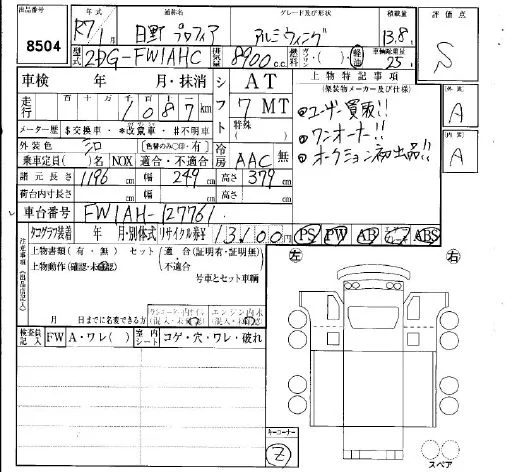 出品番号 年式 通称名 グレード及び形状 積載量 評価点
8504 R7/1月 日野 プロフィア アルミウィング 13.8t S
型式 2DG-FW1AHC 排気量 8900cc 燃料 ガソリン・( )・軽油 車輌総重量 25t
車検 年 月・抹消 シフト AT 上物特記事項
(架装物メーカー及び仕様)
走行 十 万 千 百 十 1087km 7 MT 外装 A
メーター歴 $交換車・*改竄車・#不明車 特殊( )
外装色 シロ [色替のみ○印・有] 冷房 AAC 無 内装 A
乗車定員( )名 NOX 適合・不適合
●ユーザー買取!!
●ワンオーナー!!
●オークション初出品!!
諸元長さ 1196cm 幅 249cm 高さ 379cm
荷台内寸長さ cm 幅 cm 高さ cm
車台番号 FW1AH-127761
タコグラフ装着 年 月・別体式 リサイクル券等 13,100円 PS PW AB ABS
注意事項(出品店記入)
上物書類(有・無) セット(適合(証明有・証明無)
上物動作(確認・未確認) 不適合
号車とセット車輌
左 右
月 日までに名変できる方
検査員記入 FW A・ワレ( ) 室内シート コゲ・穴・ワレ・破れ
キーコーナー
Z
スペア